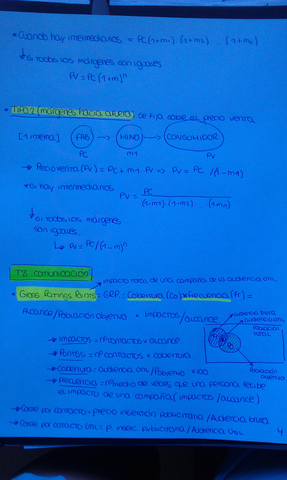 • Cuando hay intermediarios = PC (1+m1) · (1+m2) ... (1+mn)
↓ si todos los márgenes
son iguales
PV = PC (1+m)ⁿ
• TIPO 2 (márgenes hacia dentro) se fija sobre el precio venta
[1 interm.] FAB → MINO → CONSUMIDOR
PC m1 PV
→ Precio venta (PV) = PC + m1 · PV => PV = PC / (1-m1)
* Si hay intermediarios PV = PC / (1-m1) · (1-m2) ... (1-mn)
↓ si todos los márgenes
son iguales
↳ PV = PC / (1-m)ⁿ
T.8: comunicación
impacto total de una campaña de la audiencia útil
• Gross Ratings Points = GRP = Cobertura (Co) * Frecuencia (Fr) =
Alcance / Población objetivo * impactos / alcance
audiencia bruta
audiencia útil
Población total
Población objetivo
→ Impactos = nº contactos * alcance
→ Puntos = nº contactos * cobertura
→ Cobertura = audiencia útil / P. objetivo * 100
→ Frecuencia = nº medio de veces que una persona recibe
el impacto de una campaña (impactos / alcance)
→ Coste por contacto = precio inserción publicitaria / Audiencia bruta
→ Coste por contacto útil = P. inserc. publicitaria / Audiencia útil
4